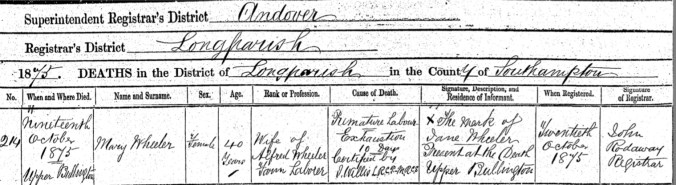 Superintendent Registrar's District Andover
Registrar's District Longparish
1875. DEATHS in the District of Longparish in the County of Southampton
No. When and Where Died. Name and Surname. Sex. Age. Rank or Profession. Cause of Death. Signature, Description, and Residence of Informant. When Registered. Signature of Registrar.
214
Nineteenth
October
1875
Upper Bullington
Mary Wheeler
Female
40
Years
Wife of
Alfred Wheeler
Farm Laborer
Premature Labour
Exhaustion
10 Days
Certified by
X The mark of
Jane Wheeler
Present at the Death
Upper Bullington
Twentieth
October
1875
John
Rodaway
Registrar